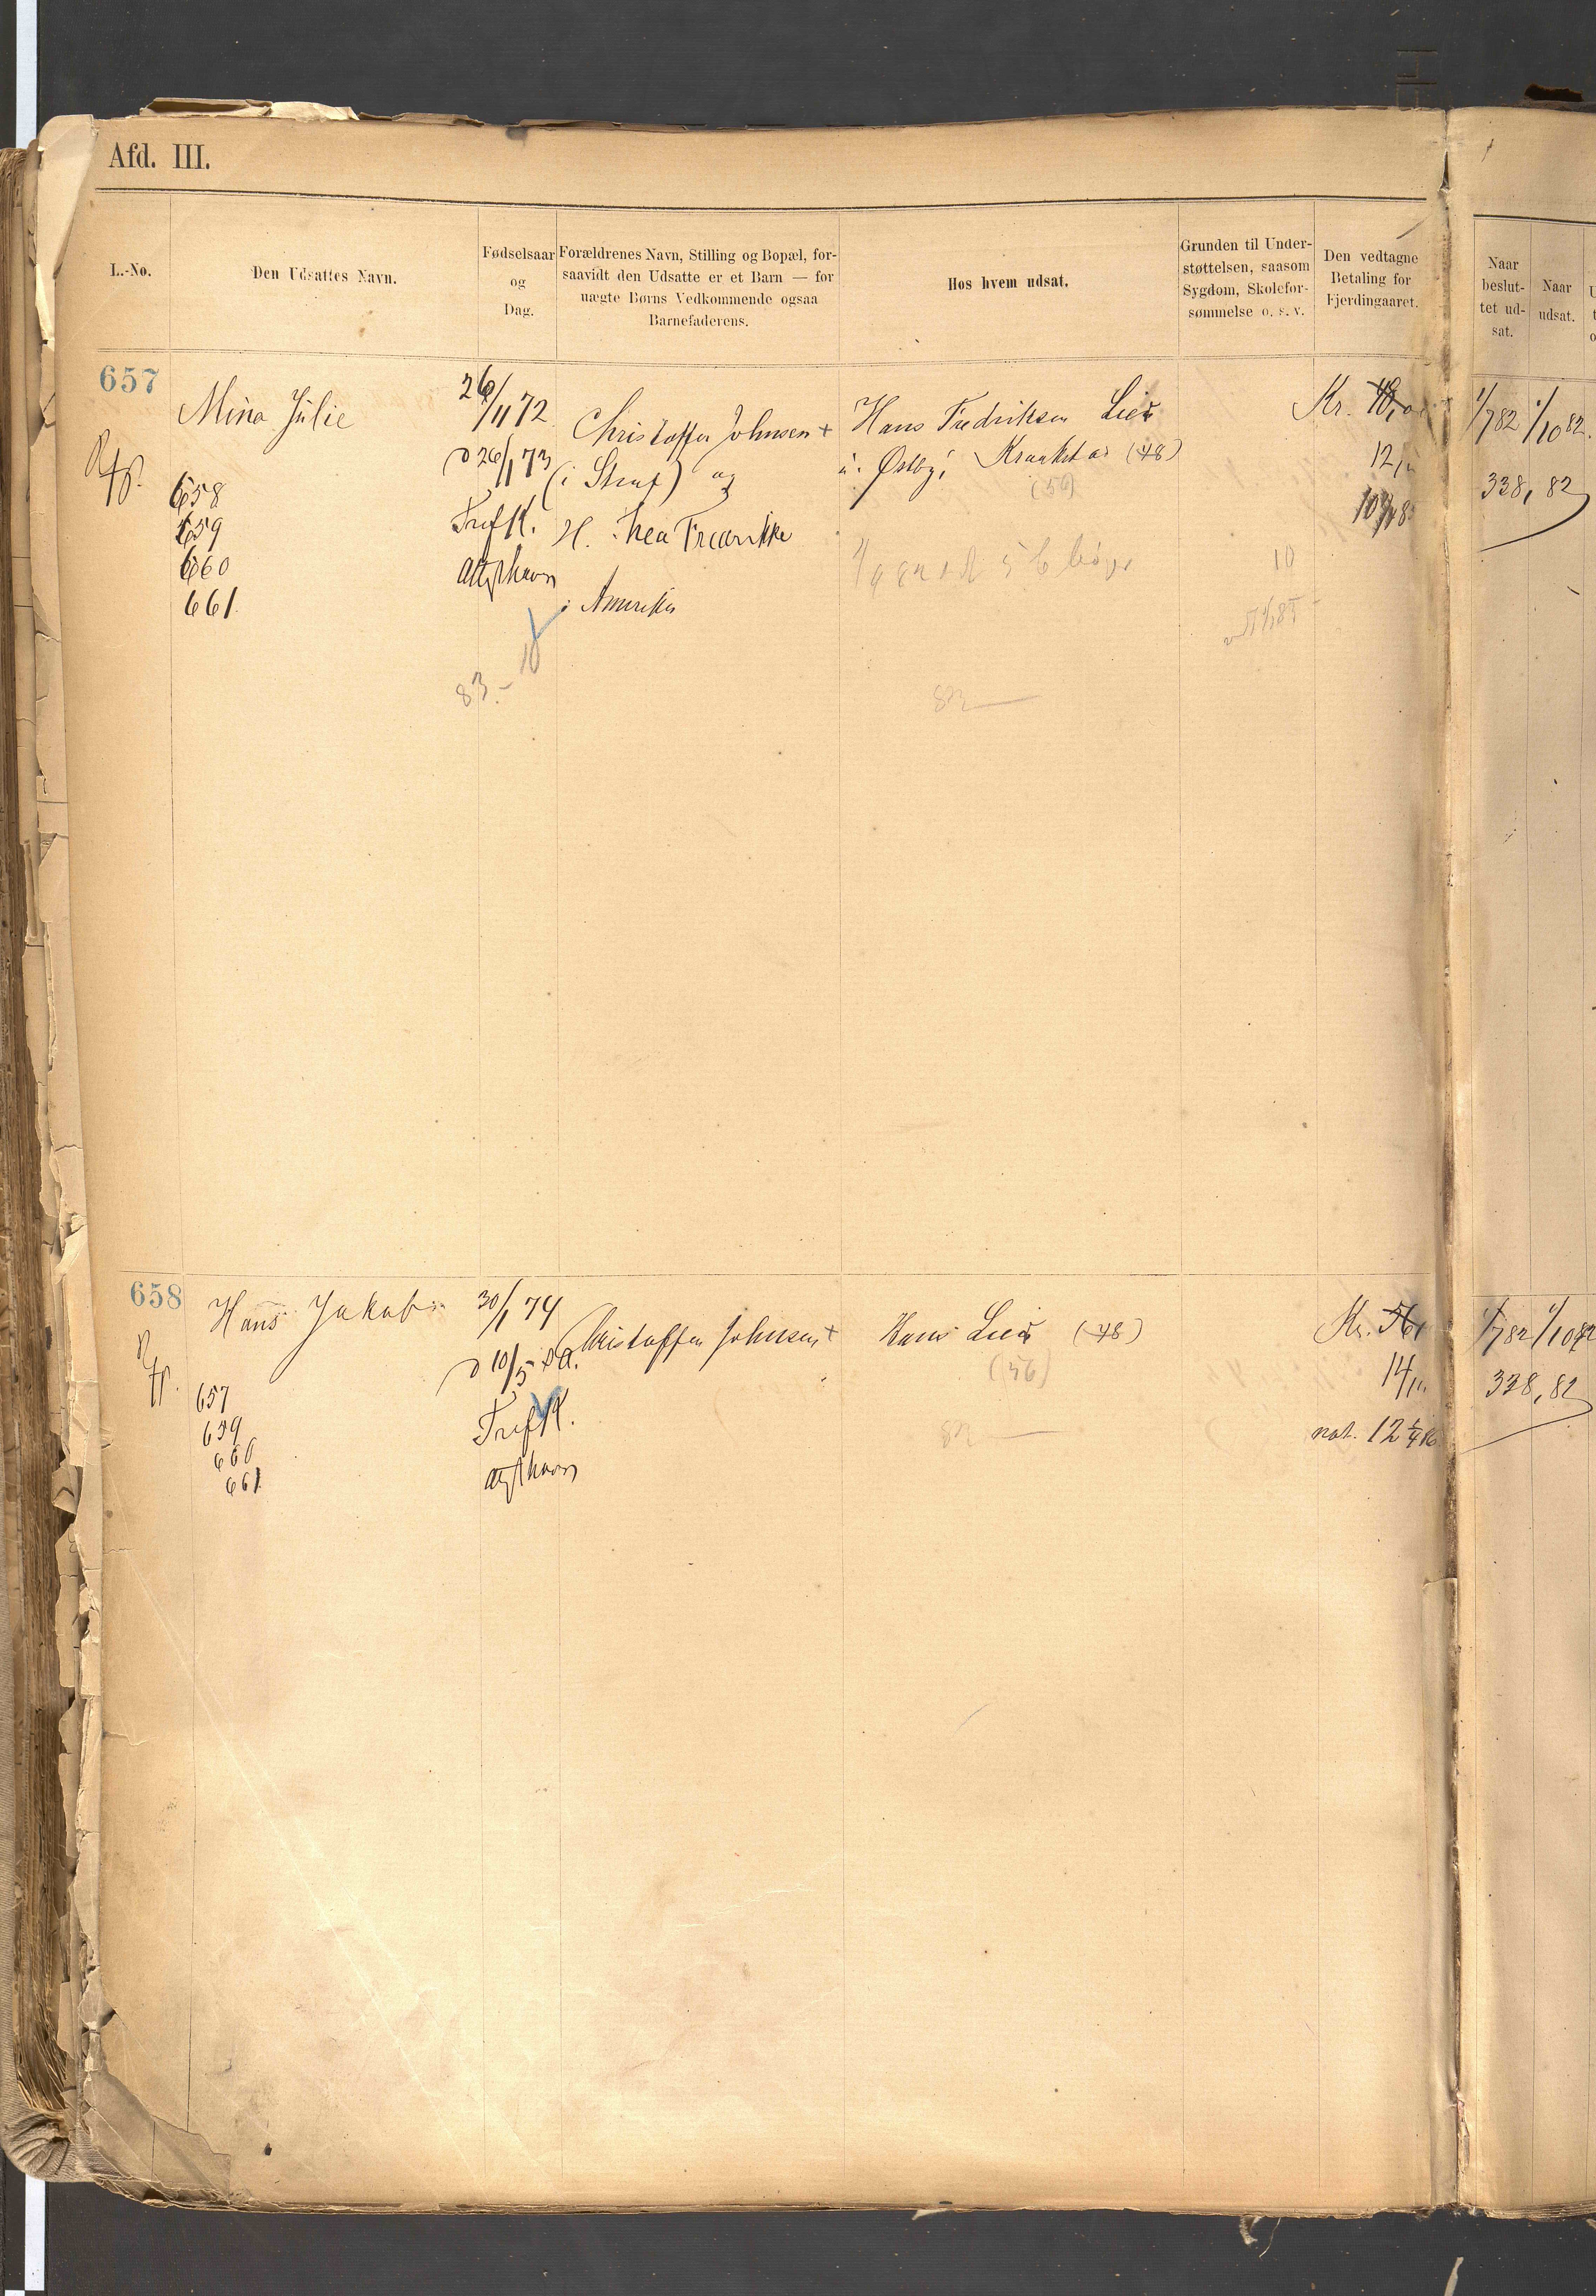 Afd. III.
L.-No.
Den Udsattes Navn.
Fødselsaar
og
Dag.
Forældrenes Navn, Stilling og Bopæl, for-
saavidt den Udsatte er et Barn — for
uægte Børns Vedkommende ogsaa
Barnefaderens.
Hos hvem udsat.
Grunden til Under-
støttelsen, saasom
Sygdom, Skolefor-
sømmelse o. s. v.
Den vedtagne
Betaling for
Fjerdingaaret.
Naar
beslut-
tet ud-
sat.
Naar
udsat.
657
Mina Julie
658
659
660
661.
26/11 72
D 26/1 73
TrefK.
Christoffer Johnsen +
(i Straf) og
H. Thea Fredrikke
i Amerika
83.-
Hans Fredriksen Lier
u. Østby, Kraakstad (48)
(56)
82
10
Kr.
12,
1/7 82 1/10 82.
338, 82
658
Hans Jakob
657
659
660
661.
30/1 74
D 10/5 s.A.
TrefK.
Christoffer Johnsen +
Hans Lier (48)
(56)
82
Kr. 56,
14,
nat. 12
1/7 82 1/10 82
338, 82